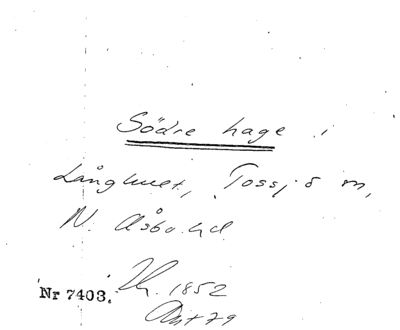 Södre hage i
Långhult, Tossjö m,
N. Åsbo hd
Nr 7403. 1852
79